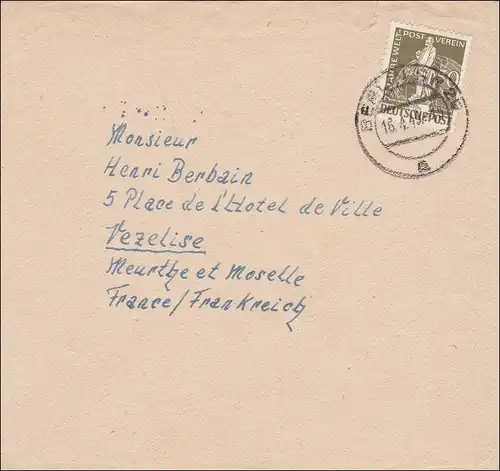 POST VEREIN
DEUTSCHE POST
Monsieur
Henri Berbain
5 Place de l'Hotel de Ville
Vezelise
Meurthe et Moselle
France/Frankreich